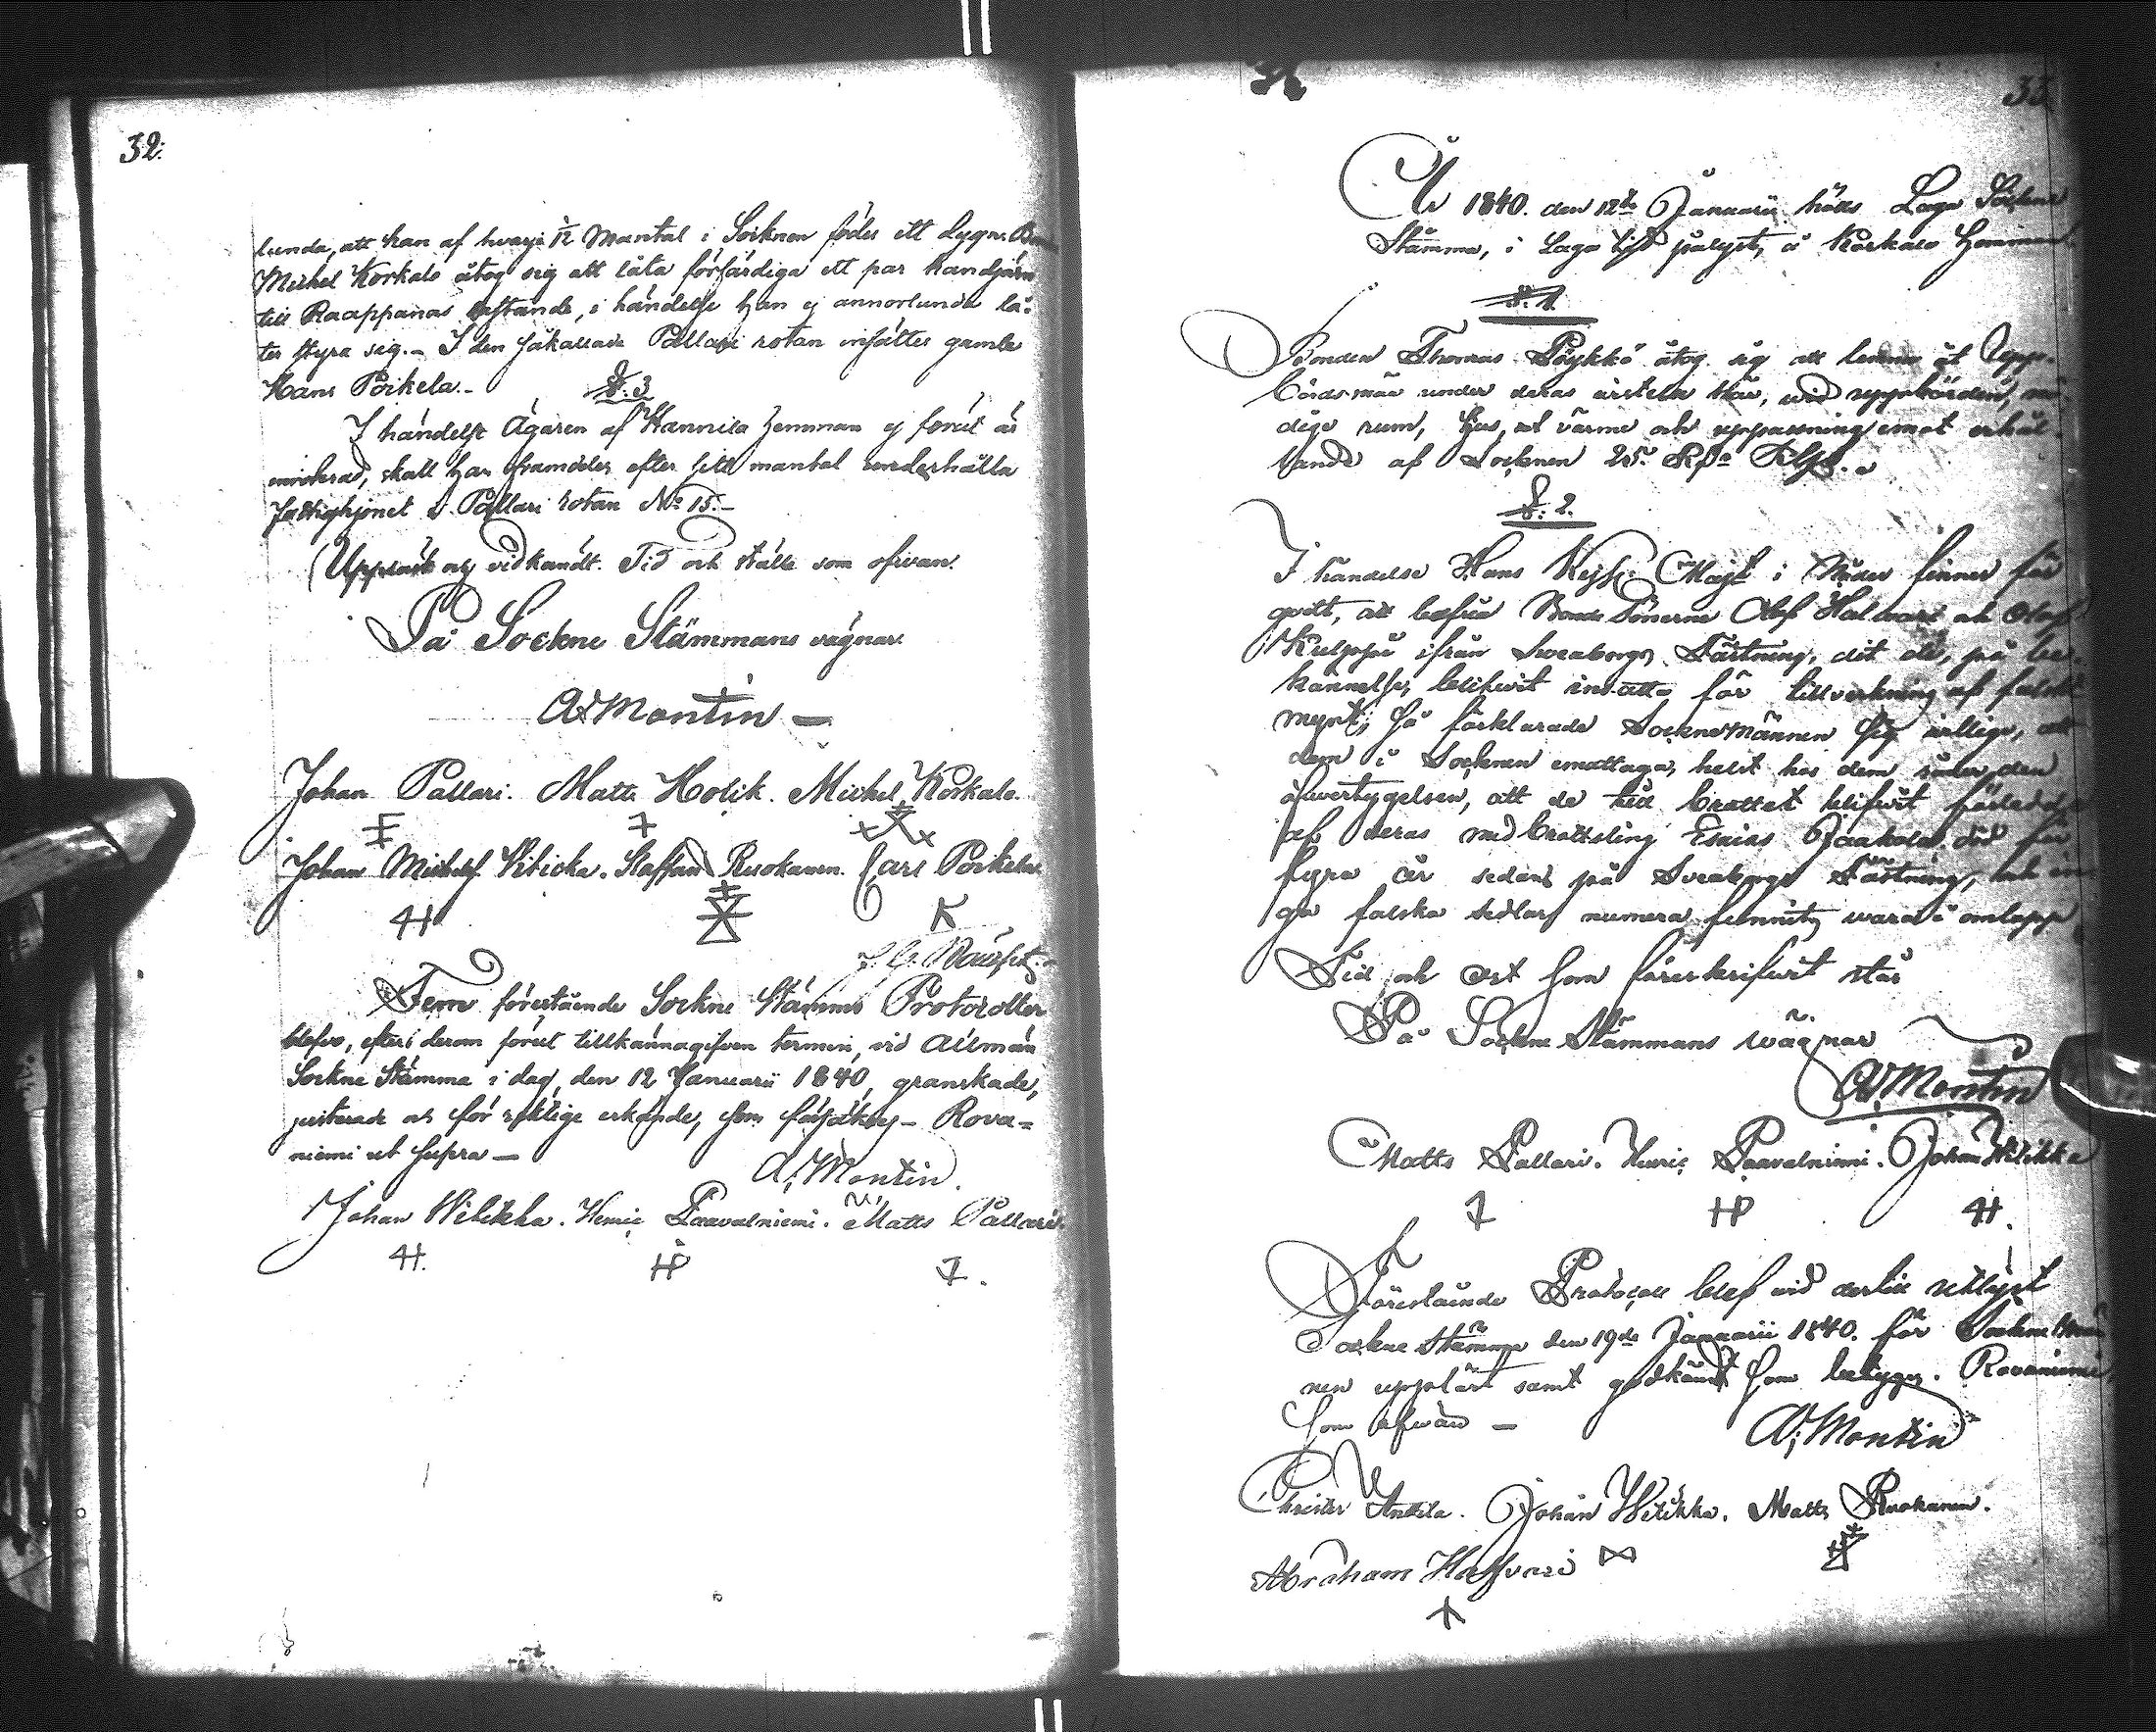 32.
lunda, att han af hvarje 1/12 Mantal i Socknen födes ett dygn. Bon
Michel Korkalo åtog sig att låta förfärdiga ett par handjärn
till Raappanas fastande, i händelse han ej annorlunda lå-
ter styra sig. – I den så kallade Pallari rotan insattes gamle
Hans Poikela. –
§. 3
I händelse Ägaren af Hannila hemman ej förut är
inroterad, skall han framdeles efter sitt mantal underhålla
fattighjonet i Pallari rotan No 15. –
Uppläst och vidkändt. Tid och ställe som ofvan.
På Sockne Stämmans vägnar.
A. Montin –
Johan Pallari. Matts Holik. Michel Korkalo.
Johan Michelsf. Vilicka. Staffan Ruokanen. Carl Poikela
4H K
Fem förestående Sockne Stämms Protocoller
blefvo, efter derom förut tillkännagifven termin, vid Allmän
Sockne Stämma i dag, den 12 Januarii 1840, granskade,
justerade och för riktige erkände, som försäkras – Rova-
niemi ut supra –
A. Montin.
Johan Wilikka. Henric Paavalniemi. Matts Pallari.
4H. HP 7.
33
År 1840. den 12te Januarii hölls Laga Sockne
Stämma, i Laga tid pålyst, å Korkalo Hemman
§. 1.
Bonden Thomas Pöykkö åtog sig att lemna åt Upp-
bördsmän under deras vistelse här, vid uppbörden, nö-
dige rum, ljus, ved värme och uppassning emot erhål-
lande af Socknen 25 Rba Silfr.
§. 2.
I händelse Hans Kejs. Majt i Nåder finner för
godt, att befria Bonde Sönerne Olof Halvari och Olof
Kulpsjö ifrån Sveaborgs Fästning, dit de, på be-
kännelse, blifwit insatte för tillverkning af falskt
mynt; så förklarade Socknemännen sig villige, att
dem i Socknen emottaga, helst hos dem råder den
öfvertygelsen, att de till brottet blifwit förledde
af deras medbrottsling Esaias Jaakola död för
fyra år sedan på Sveaborgs Fästning, och in-
ga falska sedlar numera finnits wara i omlopp
Tid och ort som föreskrifwit står
På Sockne Stämmans wägnar
A. Montin
Matts Pallari. Henric Paavalniemi. Johan Wilikka
7 HP 4H.
Förestående Protocoll blef vid dertill utlyst
Sockne Stämma den 19de Januarii 1840. för Socknemän
nen uppläst samt godkändt som betygas. Rovaniemi
som ofwan –
A. Montin
Christer Anttila. Johan Wilikka. Matts Ruokanen.
Abraham Halvari